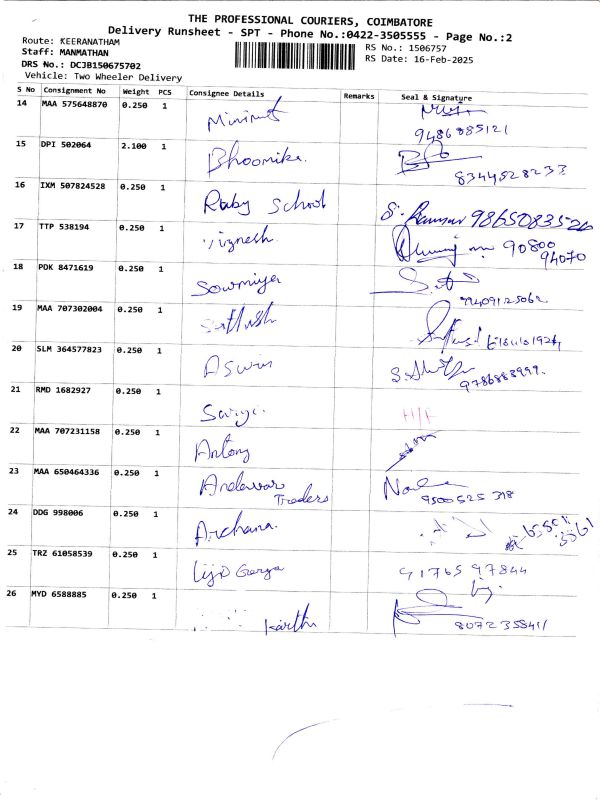 THE PROFESSIONAL COURIERS, COIMBATORE
Delivery Runsheet - SPT - Phone No.:0422-3505555 - Page No.:2
Route: KEERANATHAM
Staff: MANMATHAN
DRS No.: DCJB150675702
Vehicle: Two Wheeler Delivery
RS No.: 1506757
RS Date: 16-Feb-2025
S No Consignment No Weight PCS Consignee Details Remarks Seal & Signature
14 MAA 575648870 0.250 1
9486885121
15 DPI 502064 2.100 1 Bhoomika.
8344528233
16 IXM 507824528 0.250 1 Ruby School
17 TTP 538194 0.250 1 Vignesh 90800
94070
18 PDK 8471619 0.250 1 Sowmiya
19 MAA 707302004 0.250 1 Sathish
20 SLM 364577823 0.250 1 Aswin
9786883999.
21 RMD 1682927 0.250 1
22 MAA 707231158 0.250 1 Antony
23 MAA 650464336 0.250 1 Andavar
Traders 9500525318
24 DDG 998006 0.250 1 Archana.
25 TRZ 61058539 0.250 1 91765 97844
26 MYD 6588885 0.250 1
Karthi